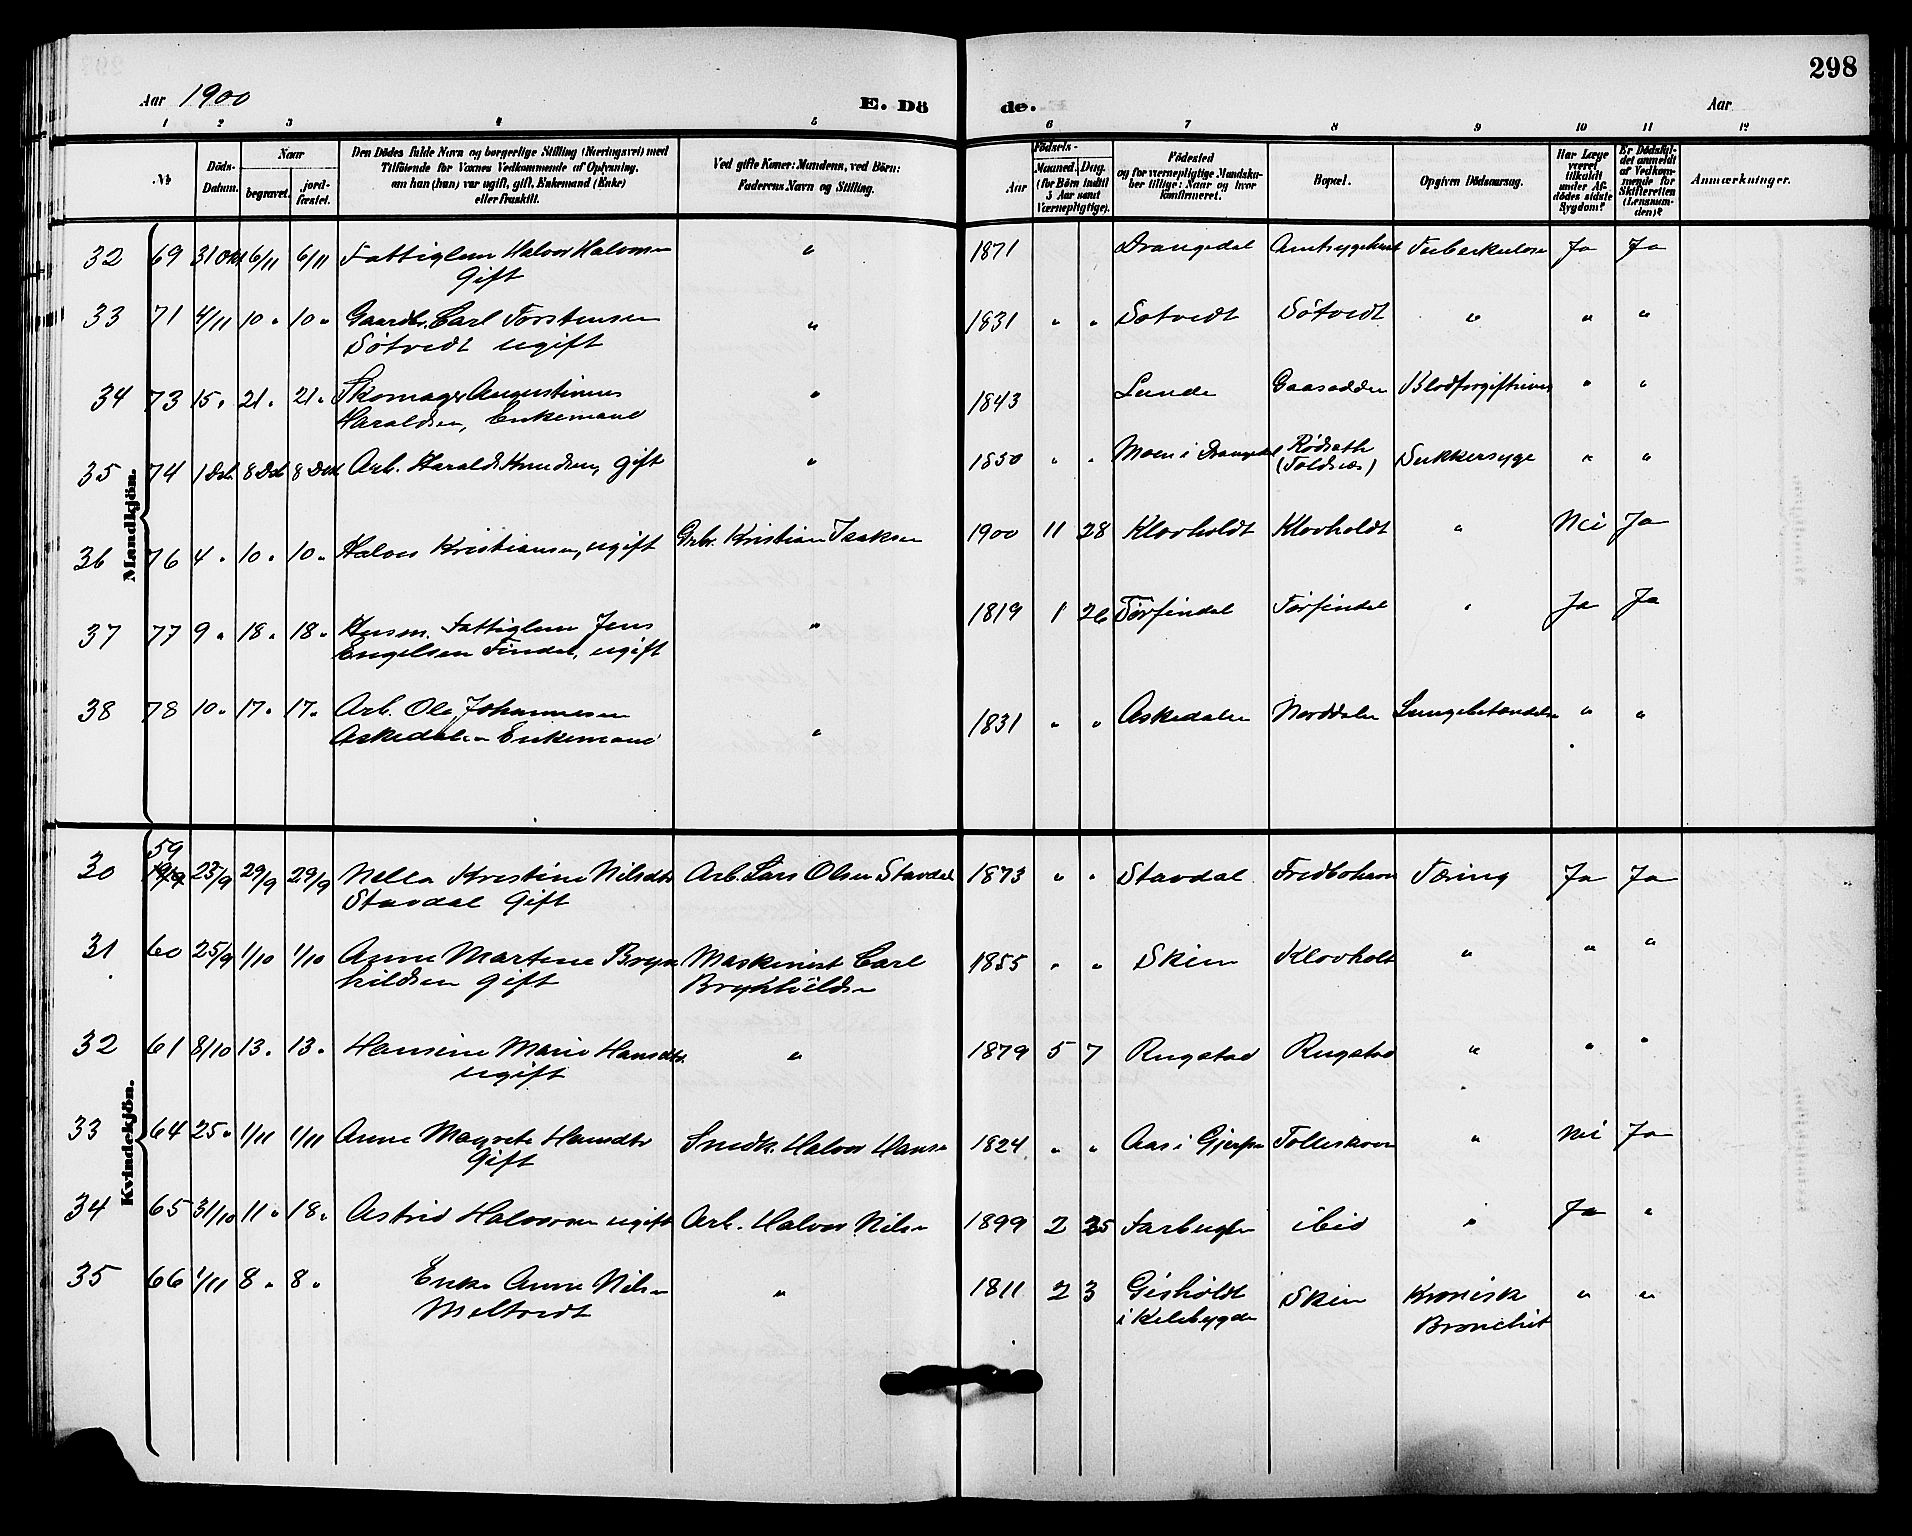 298
Aar 1900
E. Dö
de.
Aar
1 2 3 4 5 6 7 8 9 10 11 12
№
Döds-
Datum.
Naar
begravet.
jord-
fæstet.
Den Dödes fulde Navn og borgerlige Stilling (Næringsvei) med
Tilföiende for Voxnes Vedkommende af Oplysning,
om han (hun) var ugift, gift, Enkemand (Enke)
eller fraskilt.
Ved gifte Koner: Mandens, ved Börn:
Faderens Navn og Stilling.
Födsels-
Aar
Maaned. Dag.
(for Börn indtil
5 Aar samt
Værnepligtige).
Födested
og for værnepligtige Mandska-
ber tillige: Naar og hvor
konfirmeret.
Bopæl.
Opgiven Dödsaarsag.
Har Læge
været
tilkaldt
under Af-
dödes sidste
Sygdom?
Er Dödsfal-
det anmeldt
af Vedkom-
mende for
Skifteretten
(Lensman-
den)?
Anmærkninger.
Mandkjön.
32 69 31 Okt 6/11 6/11 Fattiglem Halvor Halvorsen " 1871 Drangedal Amtsygehuset Tuberkulose Ja Ja
Gift
33 71 4/11 10 " 10 " Gaardbr. Carl Torstensen " 1831 " " Sotvedt Sötvedt " " "
Sötvedt ugift
34 73 15 " 21 " 21 " Skomager Augustinus " 1843 Lunde Gaasodden Blodforgiftning " "
Haraldsen, Enkemand
35 74 1 Dcb. 8 Dcb 8 Dcb Arb. Harald Knudsen, gift " 1850 " " Moen i Drangedal Rødseth Sukkersyge " "
(Foldsæs)
36 76 4 " 10 " 10 " Halvor Kristiansen, ugift Grbr. Kristian Isaksen 1900 11 28 Klovholdt Klovholdt " Nei Ja
37 77 9 " 18 " 18 " Husm. Fattiglem Jens " 1819 1 26 Törfindal Törfindal " Ja Ja
Engelsen Findal, ugift
38 78 10 " 17 " 17 " Arb. Ole Johannesen 1831 " " Askedalen Norddalen Lungebetændelse " "
Askedalen Enkemand "
Kvindekjön.
59
30 23/9 29/9 29/9 Nella Kristine Nilsdtr Arb. Lars Olsen Stavdal 1873 " " Stavdal Fredbohavn Tæring Ja Ja
Stavdal Gift
31 60 25/9 1/10 1/10 Anne Martene Bryn Maskinist Carl 1855 " " Skien Klovholt " " "
hildsen gift Brynhildsen
32 61 8/10 13 " 13 " Hansine Marie Hansdtr. " 1879 5 7 Rugstad Rugstad " " "
ugift
33 64 25 " 1/11 1/11 Anne Magrete Hansdtr Snedk. Halvor Hansen 1824 " " Aas i Gjerpen Tolleskoven " Nei Ja
Gift
34 65 31/10 11 " 18 " Astrid Halvorsen ugift Arb. Halvor Nilsen 1899 2 25 ibid " Ja "
35 66 1/11 8 " 8 " Enke Anne Nilsen " 1811 2 3 Gisholdt Skien Kronisk " "
Meltvedt i Kilebygden Bronchit